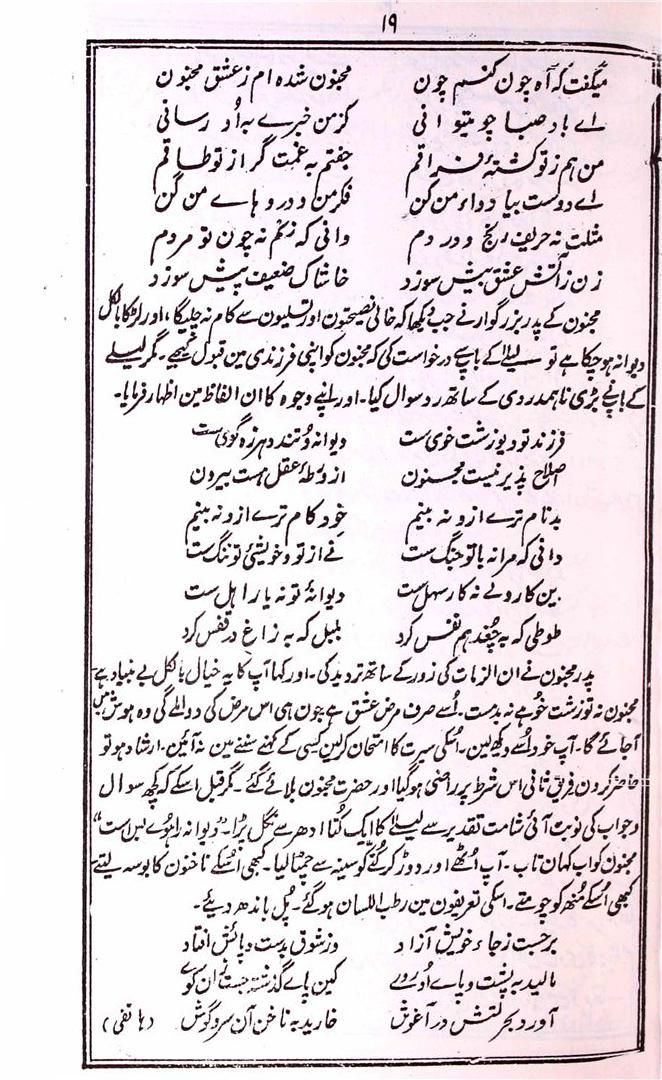 ۱۹
میگفت کہ آہ چون کنم چون    مجنون شدہ ام ز عشق مجنون
اے باد صبا چو میتوانی    کز من خبرے بہ اُو رسانی
من ہم ز تو کشتۂ فراقم    جفتم بہ غمت گر از تو طاقم
اے دوست بیا دواء من کن    فکر من و دردہاے من کن
مثلت نہ حریف رنج و دردم    دانی کہ زنم نہ چون تو مردم
زن ز آتش عشق بیش سوزد    خاشاک ضعیف پیش سوزد
مجنون کے پدر بزرگوار نے جب دیکھا کہ خالی نصیحتون اور تسلیون سے کام نہ چلیگا، اور لڑکا بالکل
دیوانہ ہوچکا ہے تو لیلےٰ کے باپ سے درخواست کی کہ مجنون کو اپنی فرزندی مین قبول کیجیے۔ مگر لیلےٰ
کے باپ نے بڑی ناہمدردی کے ساتھ رد سوال کیا۔ اور اپنے وجوہ کا ان الفاظ مین اظہار فرمایا۔
فرزند تو دیو زشت خوی ست    دیوانہ و تند و ہرزہ گوی ست
اصلاح پذیر نیست مجنون    از ورطۂ عقل ہست بیرون
بدنام ترے ازو نہ بینم    خود کام ترے ازو نہ بینم
دانی کہ مرا نہ با تو جنگ ست    نے از تو و خویشئ تو ننگ ست
بین کار ولے نہ کار سہل ست    دیوانۂ تو نہ یار اہل ست
طوطی کہ بہ چغد ہم نفس کرد    بلبل کہ بہ زاغ در قفس کرد
پدر مجنون نے ان الزامات کی زور کے ساتھ تردید کی۔ اور کہا آپ کا یہ خیال بالکل بے بنیاد ہے
مجنون نہ تو زشت خو ہے نہ بدمست۔ اُسے صرف مرض عشق ہے جون ہی اس مرض کی دوا ملے گی وہ ہوش مین
آجائے گا۔ آپ خود اُسے دیکھ لین۔ اسکی سیرت کا امتحان کرلین کسی کے کہنے سننے مین نہ آئین۔ ارشاد ہو تو
حاضر کرون فریق ثانی اس شرط پر راضی ہوگیا اور حضرت مجنون بلائے گئے۔ مگر قبل اسکے کہ کچھ سوال
وجواب کی نوبت آئی شامت تقدیر سے لیلےٰ کا ایک کُتا ادھر سے نکل پڑا۔ "دیوانہ را ہوے بس است"
مجنون کو اب کہان تاب۔ آپ اُٹھے اور دوڑ کر کُتے کو سینہ سے چمٹا لیا۔ کبھی اُسکے ناخنون کا بوسہ لیتے
کبھی اُسکے منھ کو چومتے۔ اسکی تعریفون مین رطب اللسان ہوگئے۔ پُل باندھ دیئے۔
برجست ز جاء خویش آزاد    وز شوق بدست و پائش افتاد
مالید بہ پشت و پاے اُو روے    کین پاے گذشتہ است زان کوے
آورد بحرمتش در آغوش    خارید بہ ناخن آن سر و گوش    (ہاتفی)